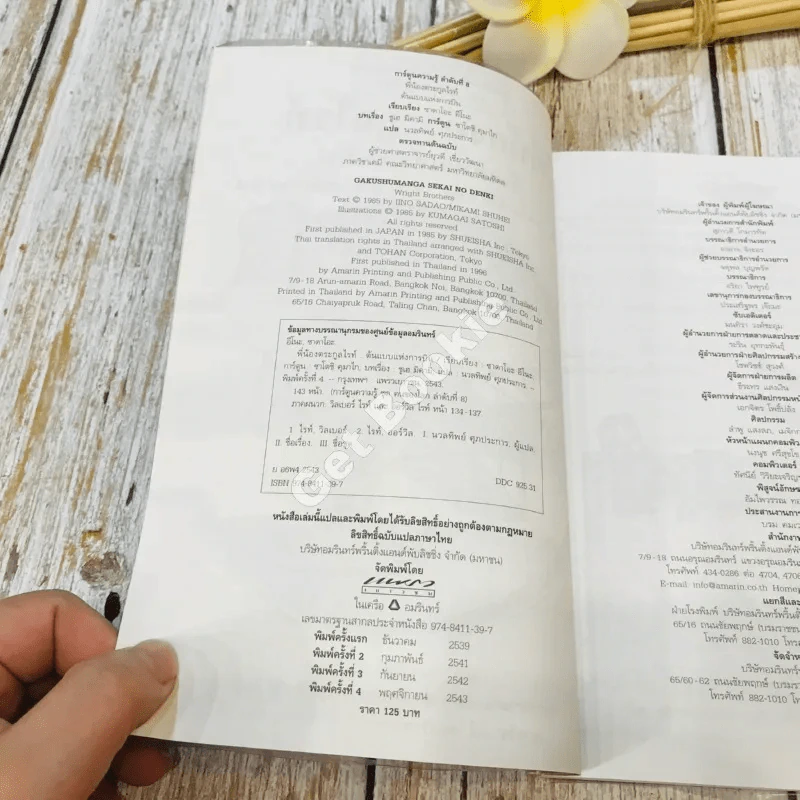 การ์ตูนความรู้ ลำดับที่ 8
พี่น้องตระกูลไรท์
ต้นแบบแห่งการบิน
เรียบเรียง ซาดาโอะ อีโนะ
บทเรื่อง ชูเฮ มิคามิ การ์ตูน ซาโตชิ คุมาไก
แปล นวลทิพย์ ศุภประการ
ตรวจทานต้นฉบับ
ผู้ช่วยศาสตราจารย์ยุวดี เชี่ยววัฒนา
ภาควิชาเคมี คณะวิทยาศาสตร์ มหาวิทยาลัยมหิดล
GAKUSHUMANGA SEKAI NO DENKI
Wright Brothers
Text © 1985 by IINO SADAO/MIKAMI SHUHEI
Illustrations © 1985 by KUMAGAI SATOSHI
All rights reserved
First published in JAPAN in 1985 by SHUEISHA Inc., Tokyo
Thai translation rights in Thailand arranged with SHUEISHA Inc.
and TOHAN Corporation, Tokyo
First published in Thailand in 1996
by Amarin Printing and Publishing Public Co., Ltd.
7/9-18 Arun-amarin Road, Bangkok Noi, Bangkok 10700, Thailand
Printed in Thailand by Amarin Printing and Publishing Public Co., Ltd
65/16 Chaiyapruk Road, Taling Chan, Bangkok Thailand
ข้อมูลทางบรรณานุกรมของศูนย์ข้อมูลอมรินทร์
อีโนะ, ซาดาโอะ.
พี่น้องตระกูลไรท์ ต้นแบบการบิน เรียบเรียง : ซาดาโอะ อีโนะ,
การ์ตูน : ซาโตชิ คุมาไก, บทเรื่อง : ชูเฮ มิคามิ แปล : นวลทิพย์ ศุภประการ. --
พิมพ์ครั้งที่ 4 -- กรุงเทพฯ 2543.
143 หน้า. (การ์ตูนความรู้ ลำดับที่ 8)
ภาคผนวก: วิลเบอร์ ไรท์ ไรท์ หน้า 134-137
1. ไรท์, วิลเบอร์. 2. ไรท์, ออร์วิล. I. นวลทิพย์ ศุภประการ, ผู้แปล.
II. ชื่อเรื่อง. III. ชื่อชุด
DDC 925.31
ISBN 974-8411-39-7
Get Bookie
หนังสือเล่มนี้แปลและพิมพ์โดยได้รับลิขสิทธิ์อย่างถูกต้องตามกฎหมาย
ลิขสิทธิ์ฉบับแปลภาษาไทย
บริษัทอมรินทร์พริ้นติ้งแอนด์พับลิชชิ่ง จำกัด (มหาชน)
จัดพิมพ์โดย
แพรว
ในเครือ อมรินทร์
เลขมาตรฐานสากลประจำหนังสือ 974-8411-39-7
พิมพ์ครั้งแรก ธันวาคม 2539
พิมพ์ครั้งที่ 2 กุมภาพันธ์ 2541
พิมพ์ครั้งที่ 3 กันยายน 2542
พิมพ์ครั้งที่ 4 พฤศจิกายน 2543
ราคา 125 บาท
เจ้าของ ผู้พิมพ์ผู้โฆษณา
บริษัทอมรินทร์พริ้นติ้งแอนด์พับลิชชิ่ง จำกัด
ผู้อำนวยการสำนักพิมพ์
บรรณาธิการอำนวยการ
ผู้ช่วยบรรณาธิการอำนวยการ
บรรณาธิการ
เลขานุการกองบรรณาธิการ
ซับเอดิเตอร์
ผู้อำนวยการฝ่ายการตลาดและประชา
ผู้อำนวยการฝ่ายศิลปกรรม
ผู้จัดการฝ่ายการผลิต
ผู้จัดการส่วนงานศิลปกรรม
ศิลปกรรม
หัวหน้าแผนกคอมพิว
คอมพิวเตอร์
พิสูจน์อักษร
ประสานงานการ
สำนักงาน
บริษัทอมรินทร์พริ้นติ้งแอนด์พับลิ
7/9-18 ถนนอรุณอมรินทร์ แขวงอรุณอมรินทร์
โทรศัพท์ 434-0286 ต่อ 4704, 4706
E-mail: info@amarin.co.th Home
แยกสีและ
ฝ่ายโรงพิมพ์ บริษัทอมรินทร์พริ้นติ้ง
65/16 ถนนชัยพฤกษ์ (บรมราชชน
โทรศัพท์ 882-1010 โทร
จัดจำ
บริษัทอมรินทร์
65/60-62 ถนนชัยพฤกษ์ (บรมรา
โทรศัพท์ 882-1010